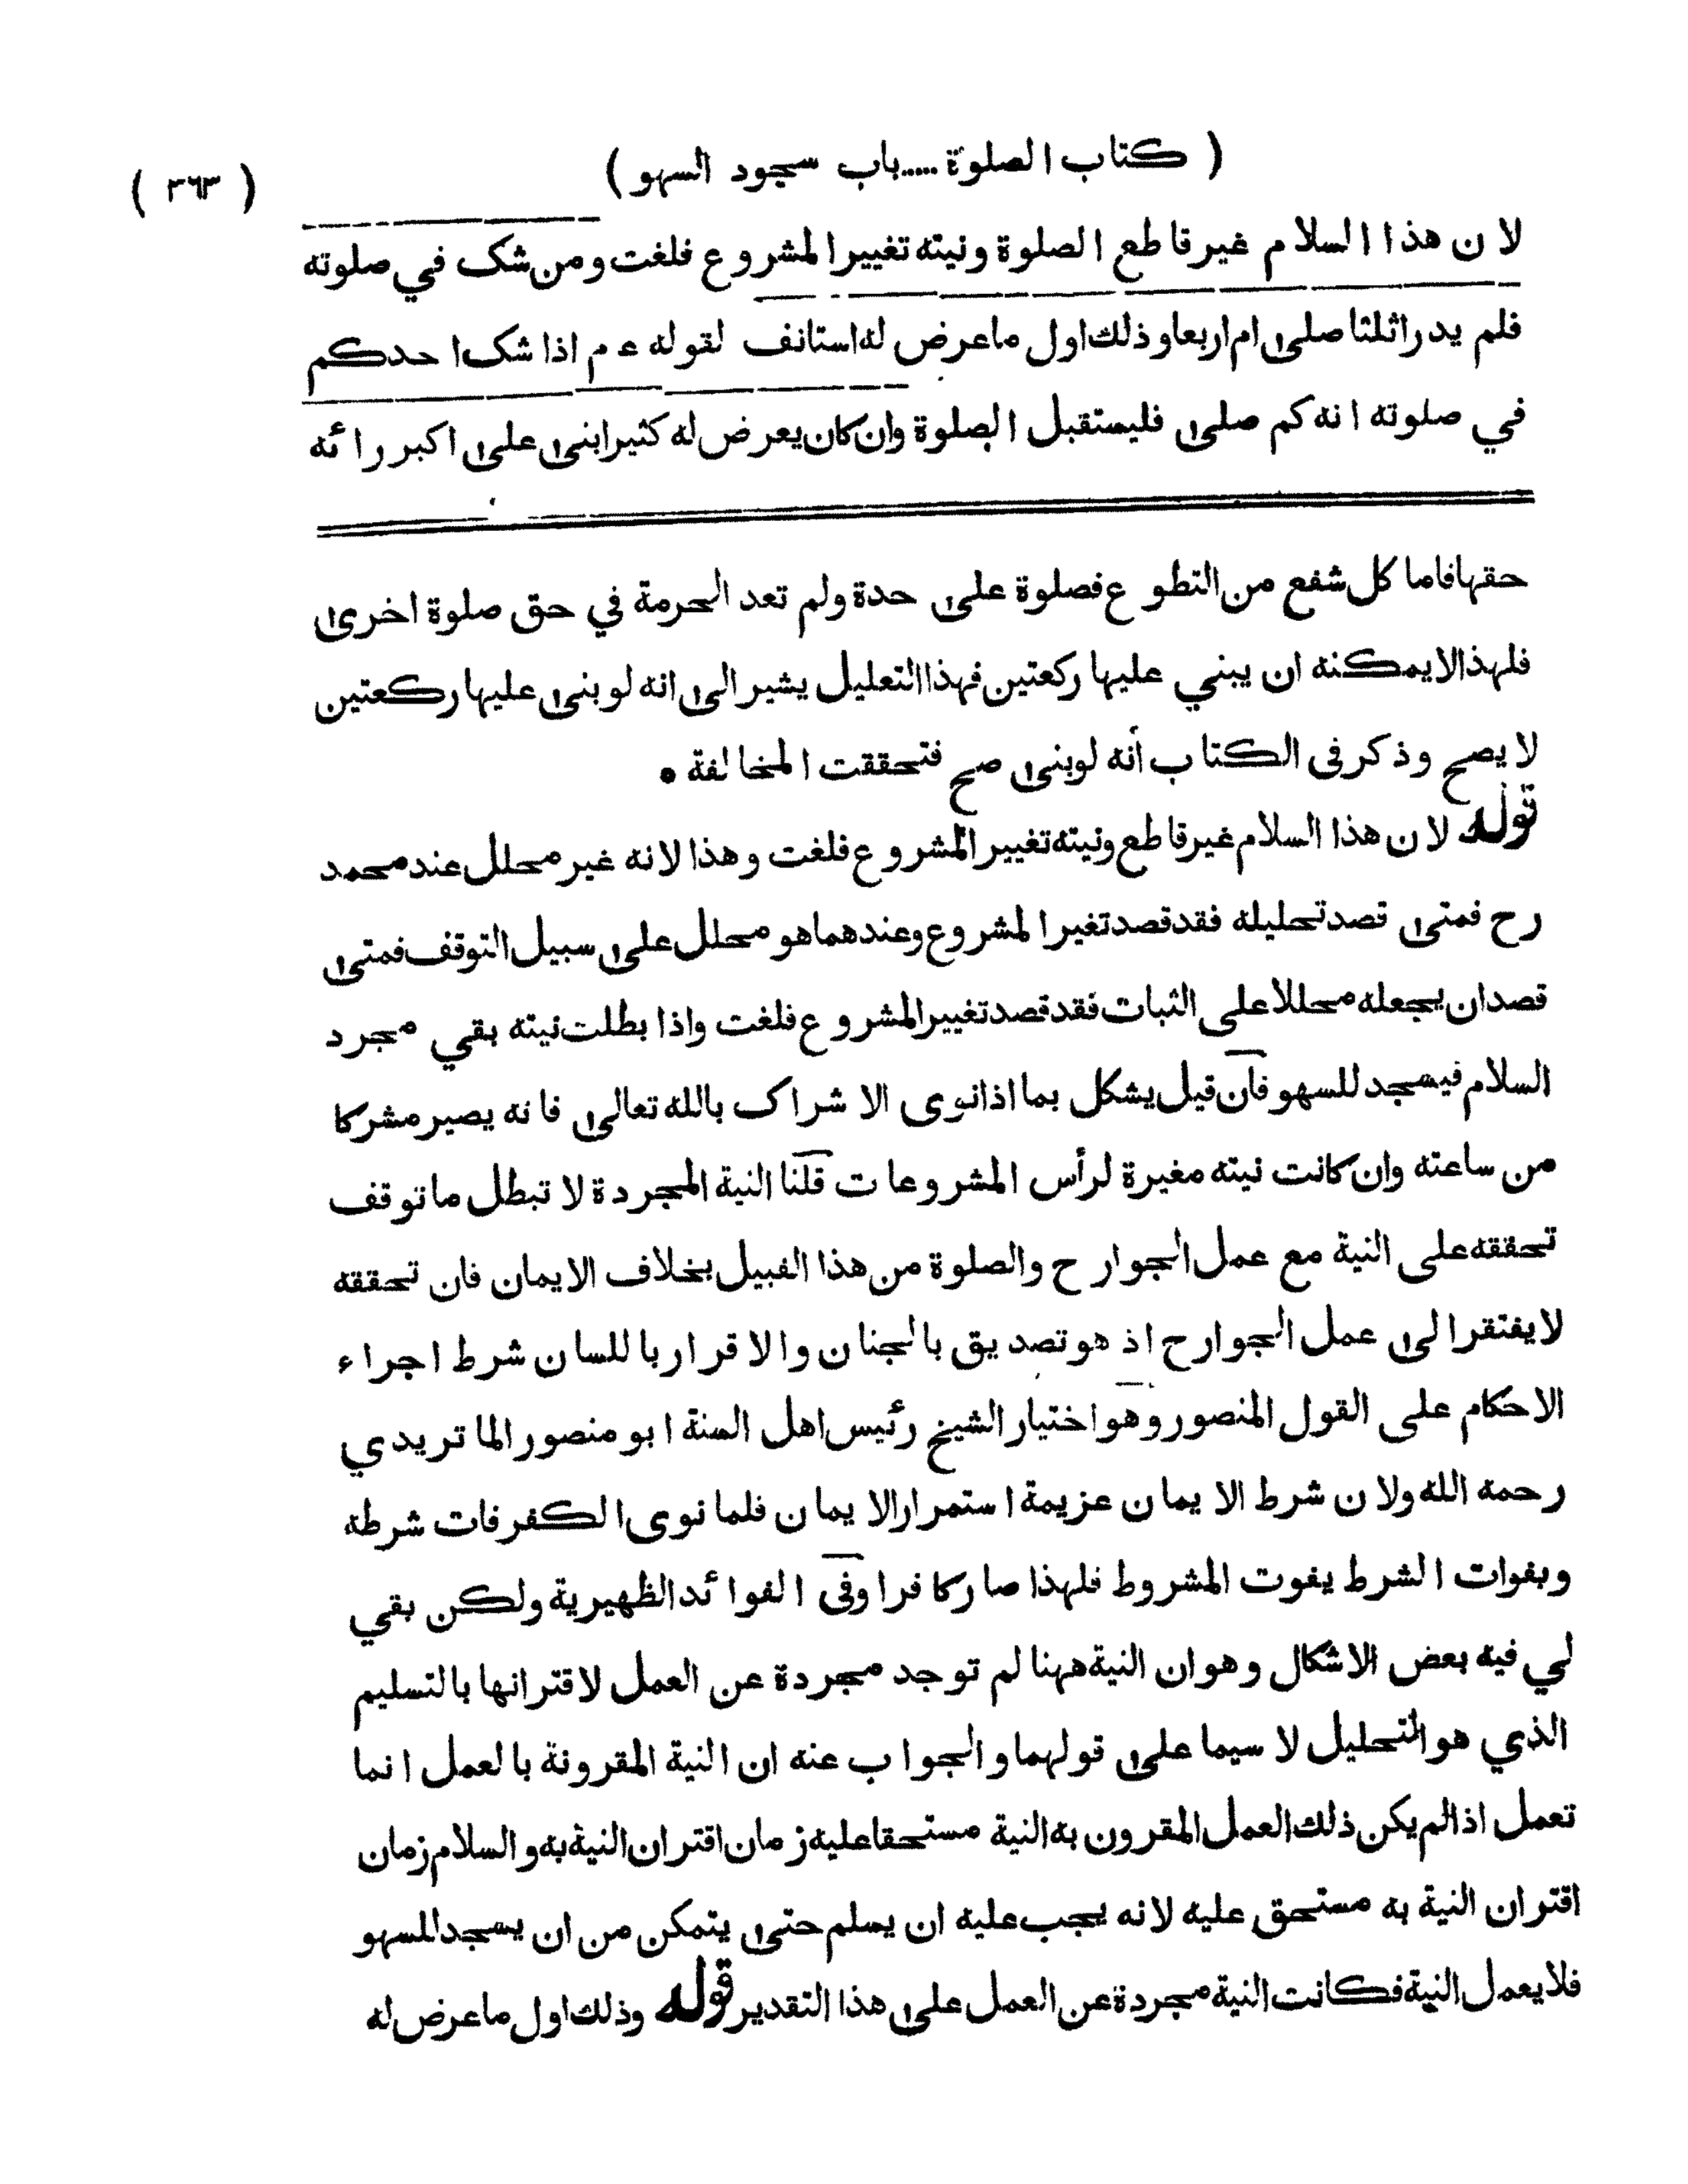 ( كتاب الصلوة .....باب سجود السهو )
( ٣٦٣ )
لان هذا السلام غير قاطع الصلوة ونيته تغيير المشروع فلغت ومن شک في صلوته
فلم يدر اثلثا صلى ام اربعا وذلك اول ما عرض له استانف لقوله عم اذا شک احدكم
في صلوته انه كم صلى فليستقبل الصلوة وان كان يعرض له كثيرا بنى على اكبر رائه
حقها فاما كل شفع من التطوع فصلوة على حدة ولم تعد الحرمة في حق صلوة اخرى
فلهذا لا يمكنه ان يبني عليها ركعتين فهذا التعليل يشير الى انه لو بنى عليها ركعتين
لا يصح وذكر فى الكتاب أنه لو بنى صح فتحققت المخالفة •
قوله لان هذا السلام غير قاطع ونيته تغيير المشروع فلغت وهذا لانه غير محلل عند محمد
رح فمتى قصد تحليله فقد قصد تغير المشروع وعندهما هو محلل على سبيل التوقف فمتى
قصد ان يجعله محللا على الثبات فقد قصد تغيير المشروع فلغت واذا بطلت نيته بقي مجرد
السلام فيسجد للسهو فان قيل يشكل بما اذا نوى الاشراک بالله تعالى فانه يصير مشركا
من ساعته وان كانت نيته مغيرة لرأس المشروعات قلنا النية المجردة لا تبطل ما توقف
تحققه على النية مع عمل الجوارح والصلوة من هذا القبيل بخلاف الايمان فان تحققه
لا يفتقر الى عمل الجوارح اذ هو تصديق بالجنان والاقرار باللسان شرط اجراء
الاحكام على القول المنصور وهو اختيار الشيخ رئيس اهل السنة ابو منصور الماتريدي
رحمه الله ولان شرط الايمان عزيمة استمرار الايمان فلما نوى الكفر فات شرطه
وبفوات الشرط يفوت المشروط فلهذا صار كافرا وفى الفوائد الظهيرية ولكن بقي
لي فيه بعض الاشكال وهو ان النية ههنا لم توجد مجردة عن العمل لاقترانها بالتسليم
الذي هو التحليل لا سيما على قولهما والجواب عنه ان النية المقرونة بالعمل انما
تعمل اذا لم يكن ذلك العمل المقرون به النية مستحقا عليه زمان اقتران النية به والسلام زمان
اقتران النية به مستحق عليه لانه يجب عليه ان يسلم حتى يتمكن من ان يسجد للسهو
فلا يعمل النية فكانت النية مجردة عن العمل على هذا التقدير قوله وذلك اول ما عرض له